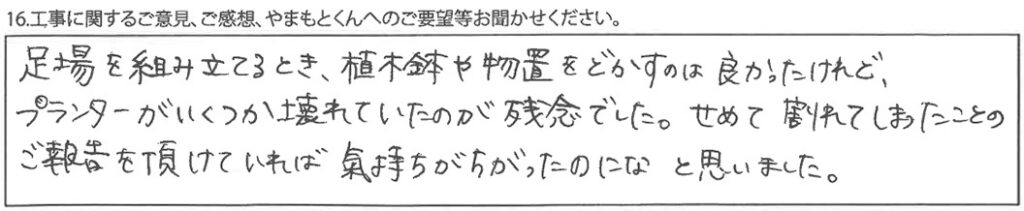 16.工事に関するご意見、ご感想、やまもとくんへのご要望等お聞かせください。
足場を組み立てるとき、植木鉢や物置をどかすのは良かったけれど、
プランターがいくつか壊れていたのが残念でした。せめて割れてしまったことの
ご報告を頂けていれば氣持ちがちがったのになと思いました。